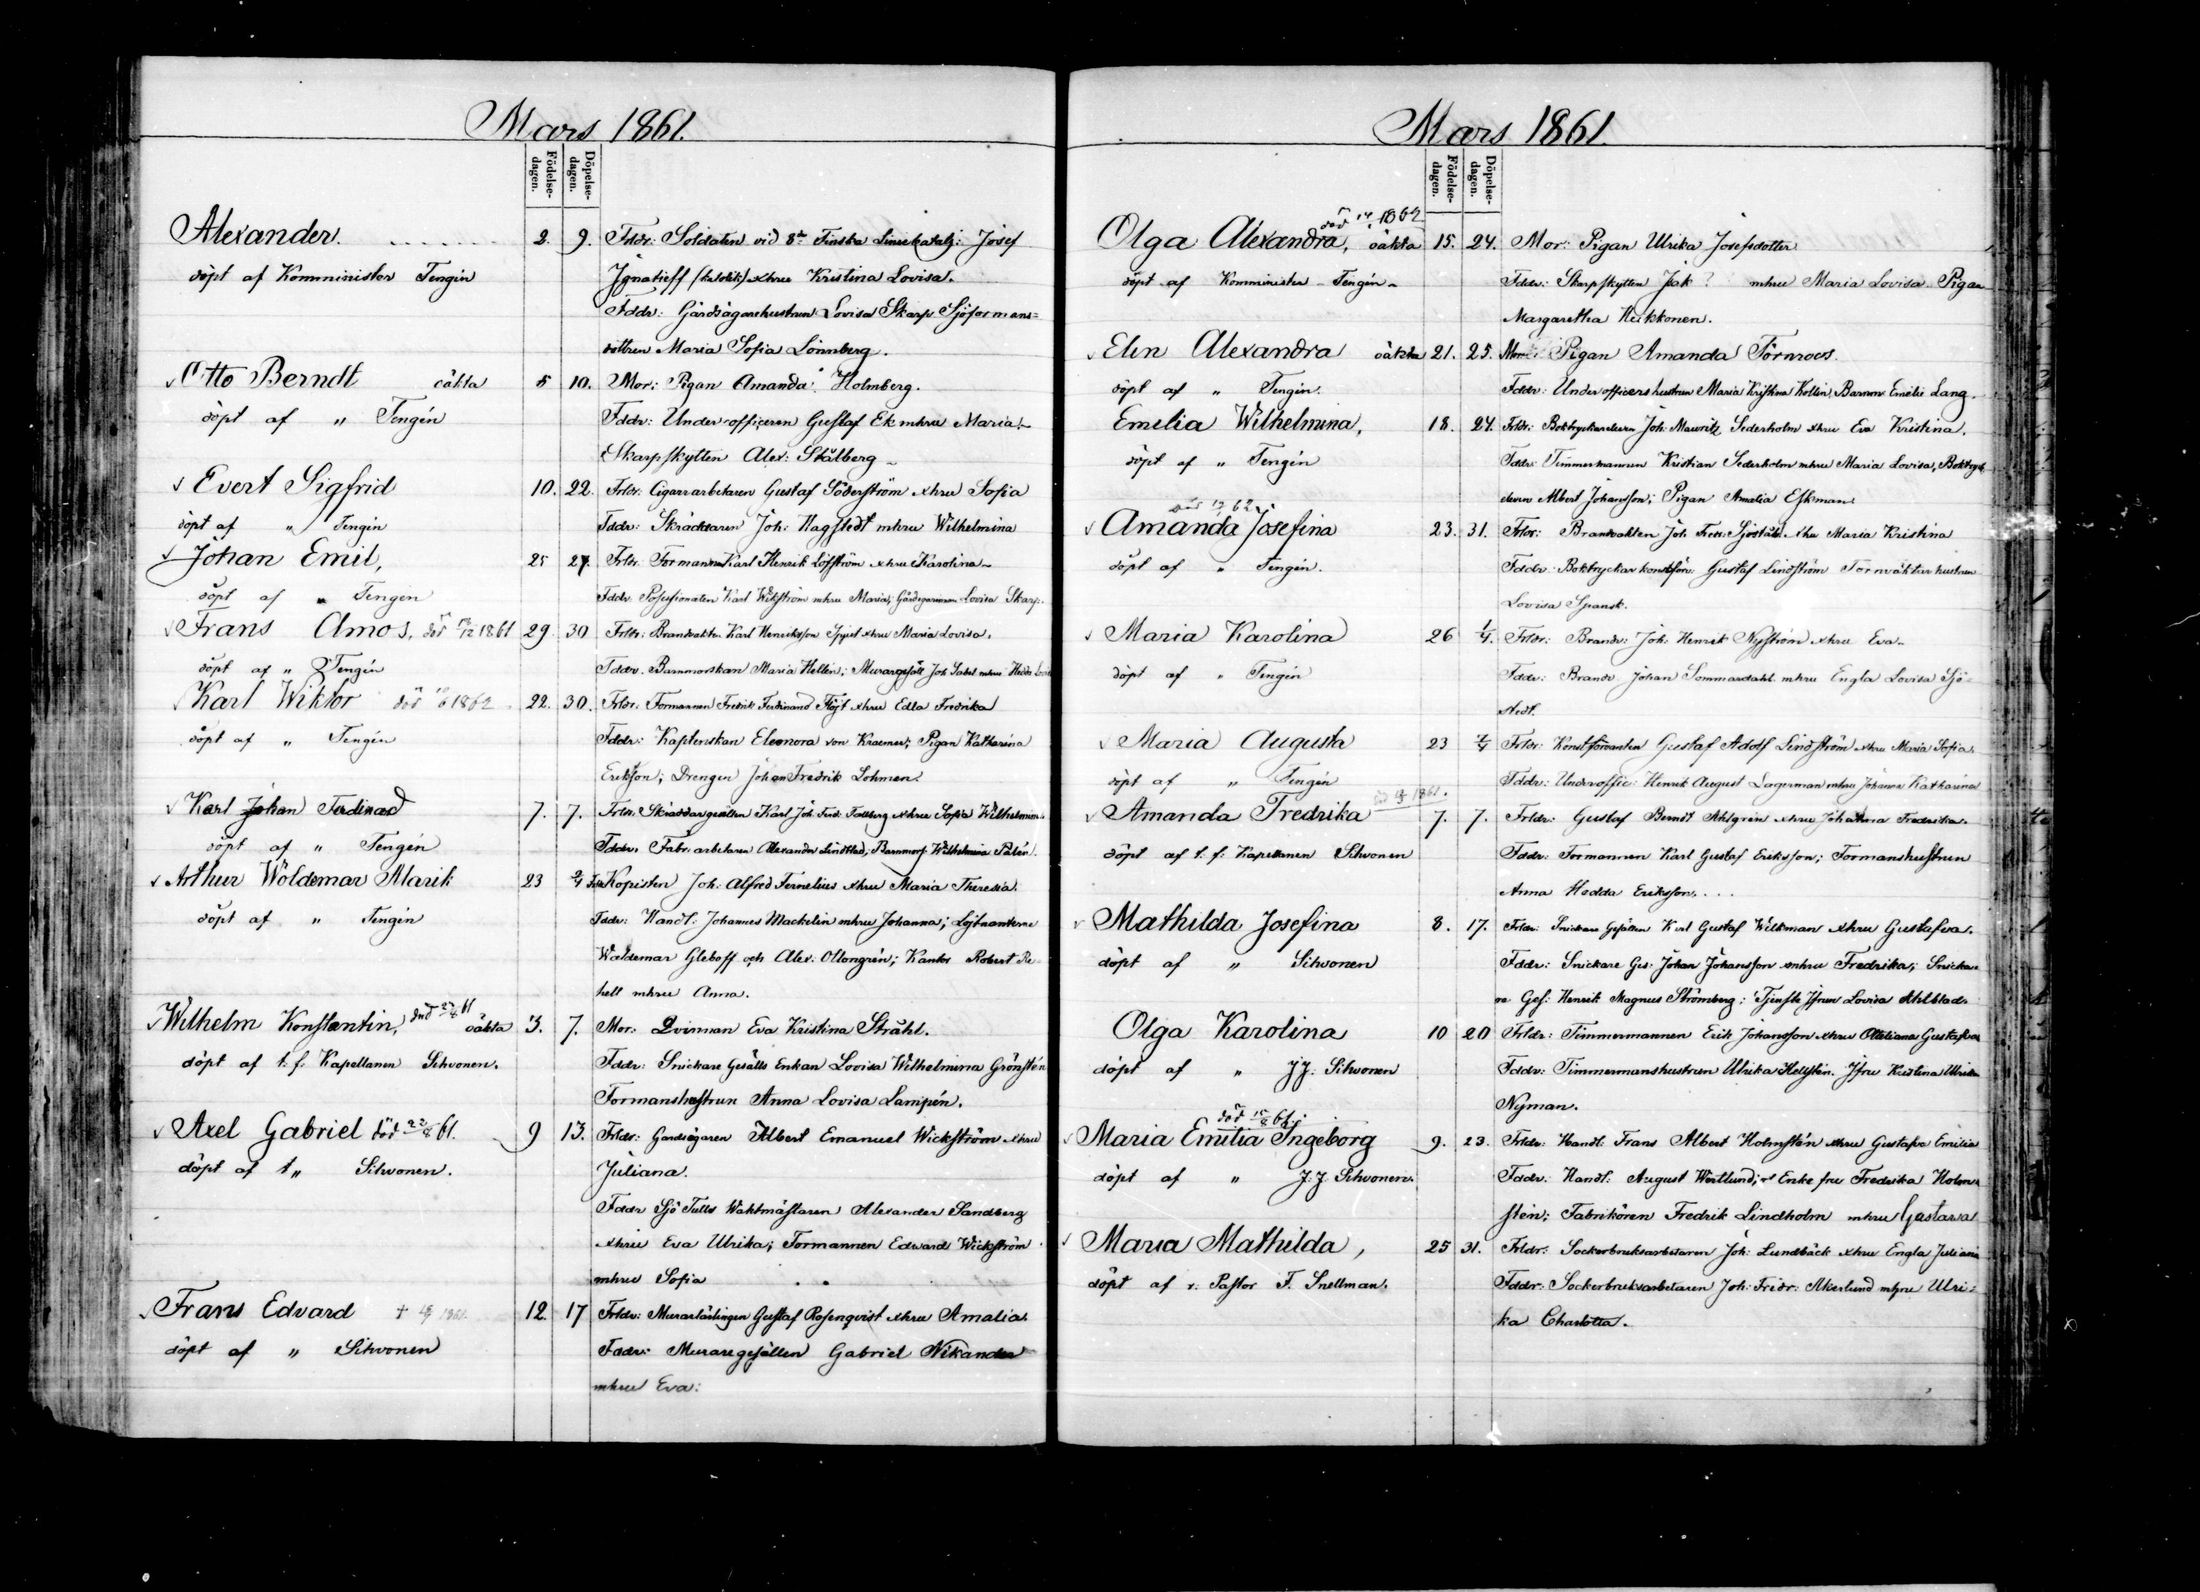 Mars 1861.
Födelse-dagen.
Döpelse-dagen.
Alexander. 2. 9. Frldr: Soldaten vid 8de Finska Liniebatalj: Josef
döpt af Komminister Tengén Ignatieff (katolik) o hu Kristina Lovisa.
Fddr: Gårdsägarehustrun Lovisa Skarp Sjöformans=
dottren Maria Sofia Lönnberg.
Otto Berndt oäkta 5 10. Mor: Pigan Amanda Holmberg.
döpt af " Tengén Fddr: Underofficeren Gustaf Ek mhru Maria
Skarpskytten Alex: Stålberg
Evert Sigfrid 10. 22. Frldr: Cigarrarbetaren Gustaf Söderström o hu Sofia
döpt af " Tengén Fddr: Skräddaren Joh: Hagstedt mhru Wilhelmina
Johan Emil, 25 27. Frldr. Formannen Karl Henrik Löfström o hu Karolina
döpt af " Tengén Fddr: Possessionaten Karl Wikström mhru Maria; Lovisa Skarp.
Frans Amos, död 1861 29 30 Frldr: Brandvakten Karl Henriksson o hu Maria Lovisa.
döpt af " Tengén Fddr. Barnmorskan Maria Hellen; Murargesäll Joh mhru
Karl Wiktor död 1862 22. 30. Frldr: Formannen Fredrik Ferdinand Flöjt o hu Edla Fredrika
döpt af " Tengén Fddr: Kaptenskan Eleonora von Kraemer; Pigan Katharina
Eriksson; Drengen Johan Fredrik Lohmen.
Karl Johan Ferdinand 7. 7. Frldr: Skräddargesällen Karl Joh: Ferd: o hu Sofia Wilhelmina
döpt af " Tengén Fddr. Fabr: arbetaren Alexander Lindblad; Barnmorsk Wilhelmina Palén.
Arthur Woldemar Alarik 23 2/4 Frldr: Kopisten Joh: Alfred Fernelius o hu Maria Theresia.
döpt af " Tengén Fddr: Handl: Johannes Mackelin mhru Johanna; Löjtnanterne
Waldemar Gleboff och Alex: Ollongrén; Kantor Robert Re
hell mhru Anna.
Wilhelm Konstantin, död 61 oäkta 3. 7. Mor: Qvinnan Eva Kristina Stråhl.
döpt af t. f. Kapellanen Sihvonen. Fddr: Snickare Gesälls Enkan Lovisa Wilhelmina Grönstén
Formanshustrun Anna Lovisa Lampén.
Axel Gabriel död 22/8 61. 9 13. Frldr: Gårdsägaren Albert Emanuel Wickström o hu
döpt af t " Sihvonen. Juliana.
Fddr Sjö Tulls Waktmästaren Alexander Sandberg
mhru Eva Ulrika; Formannen Edward Wickström
mhru Sofia
Frans Edvard † 1861. 12. 17 Frldr: Murarlärlingen Gustaf Rosenqvist o hu Amalia.
döpt af " Sihvonen Fddr: Muraregesällen Gabriel Nikander
mhru Eva:
Mars 1861.
Födelse-dagen.
Döpelse-dagen.
död 1862
Olga Alexandra, oäkta 15. 24. Mor: Pigan Ulrika Josefsdotter
döpt af Komminister Tengén Fddr: Skarpskytten Jak ? mhru Maria Lovisa Pigan
Margaretha Hukkonen.
Elin Alexandra oäkta 21. 25. Mor: Pigan Amanda Törnroos.
döpt af " Tengén. Fddr: Underofficershustrun Maria Kristina Kollin, Barnm: Emelie Lang.
Emelia Wilhelmina, 18. 24. Frldr: Boktryckareeleven Joh: Mauritz Sederholm o hu Eva Kristina.
döpt af " Tengén Fddr: Timmermannen Kristian Sederholm mhru Maria Lovisa, Boktryck
eleven Albert Johansson; Pigan Amalia Eskman.
död 62
Amanda Josefina 23. 31. Frldr: Brandvakten Joh: Fredr: o hu Maria Kristina
döpt af " Tengén. Fddr: Boktryckar konstförv. Gustaf Lindström Tornväktar hustrun
Lovisa Spansk.
Maria Karolina 26 1/4. Frldr: Brandv: Joh: Henrik Nyström o hu Eva.
döpt af " Tengén Fddr: Brandv Johan Sommardahl mhru Engla Lovisa Sjö
stedt.
Maria Augusta 23 2/4 Frldr: Konstförvanten Gustaf Adolf Lindström o hu Maria Sofia.
döpt af " Tengén Fddr: Underoffic: Henrik August Lagerman mhru Johanna Katharina
död 1861.
Amanda Fredrika 7. 7. Frldr: Gustaf Berndt Ahlgren o hu Johanna Fredrika.
döpt af t. f. Kapellanen Sihvonen Fddr: Formannen Karl Gustaf Eriksson; Formanshustrun
Anna Hedda Eriksson.
Mathilda Josefina 8. 17. Frldr: Snickare Gesällen Karl Gustaf Wikman o hu Gustafva.
döpt af " Sihvonen Fddr: Snickare Ges: Johan Johansson mhru Fredrika; Snicka
re Ges: Henrik Magnus Strömberg; Tjenste Jfrun Lovisa Ahlblad.
Olga Karolina 10 20 Frldr: Timmermannen Erik Johansson o hu Ottiliana Gustafva
döpt af " J.J. Sihvonen Fddr: Timmermanshustrun Ulrika Hellstén. Jfru Kristina Ulrika
Nyman.
död 15/8 61.
Maria Emilia Ingeborg 9. 23. Frldr: Handl: Frans Albert Holmstén o hu Gustafva Emilia
döpt af " J.J. Sihvonen. Fddr: Handl: August Westlund; Enke fru Fredrika Holm
stén; Fabrikören Fredrik Lindholm mhru Gustava
Maria Mathilda, 25 31. Frldr: Sockerbruksarbetaren Joh: Lundbäck o hu Engla Juliana
döpt af v. Pastor F. Snellman. Fddr: Sockerbruksarbetaren Joh: Fredr: Åkerlund mhru Ulri=
ka Charlotta.